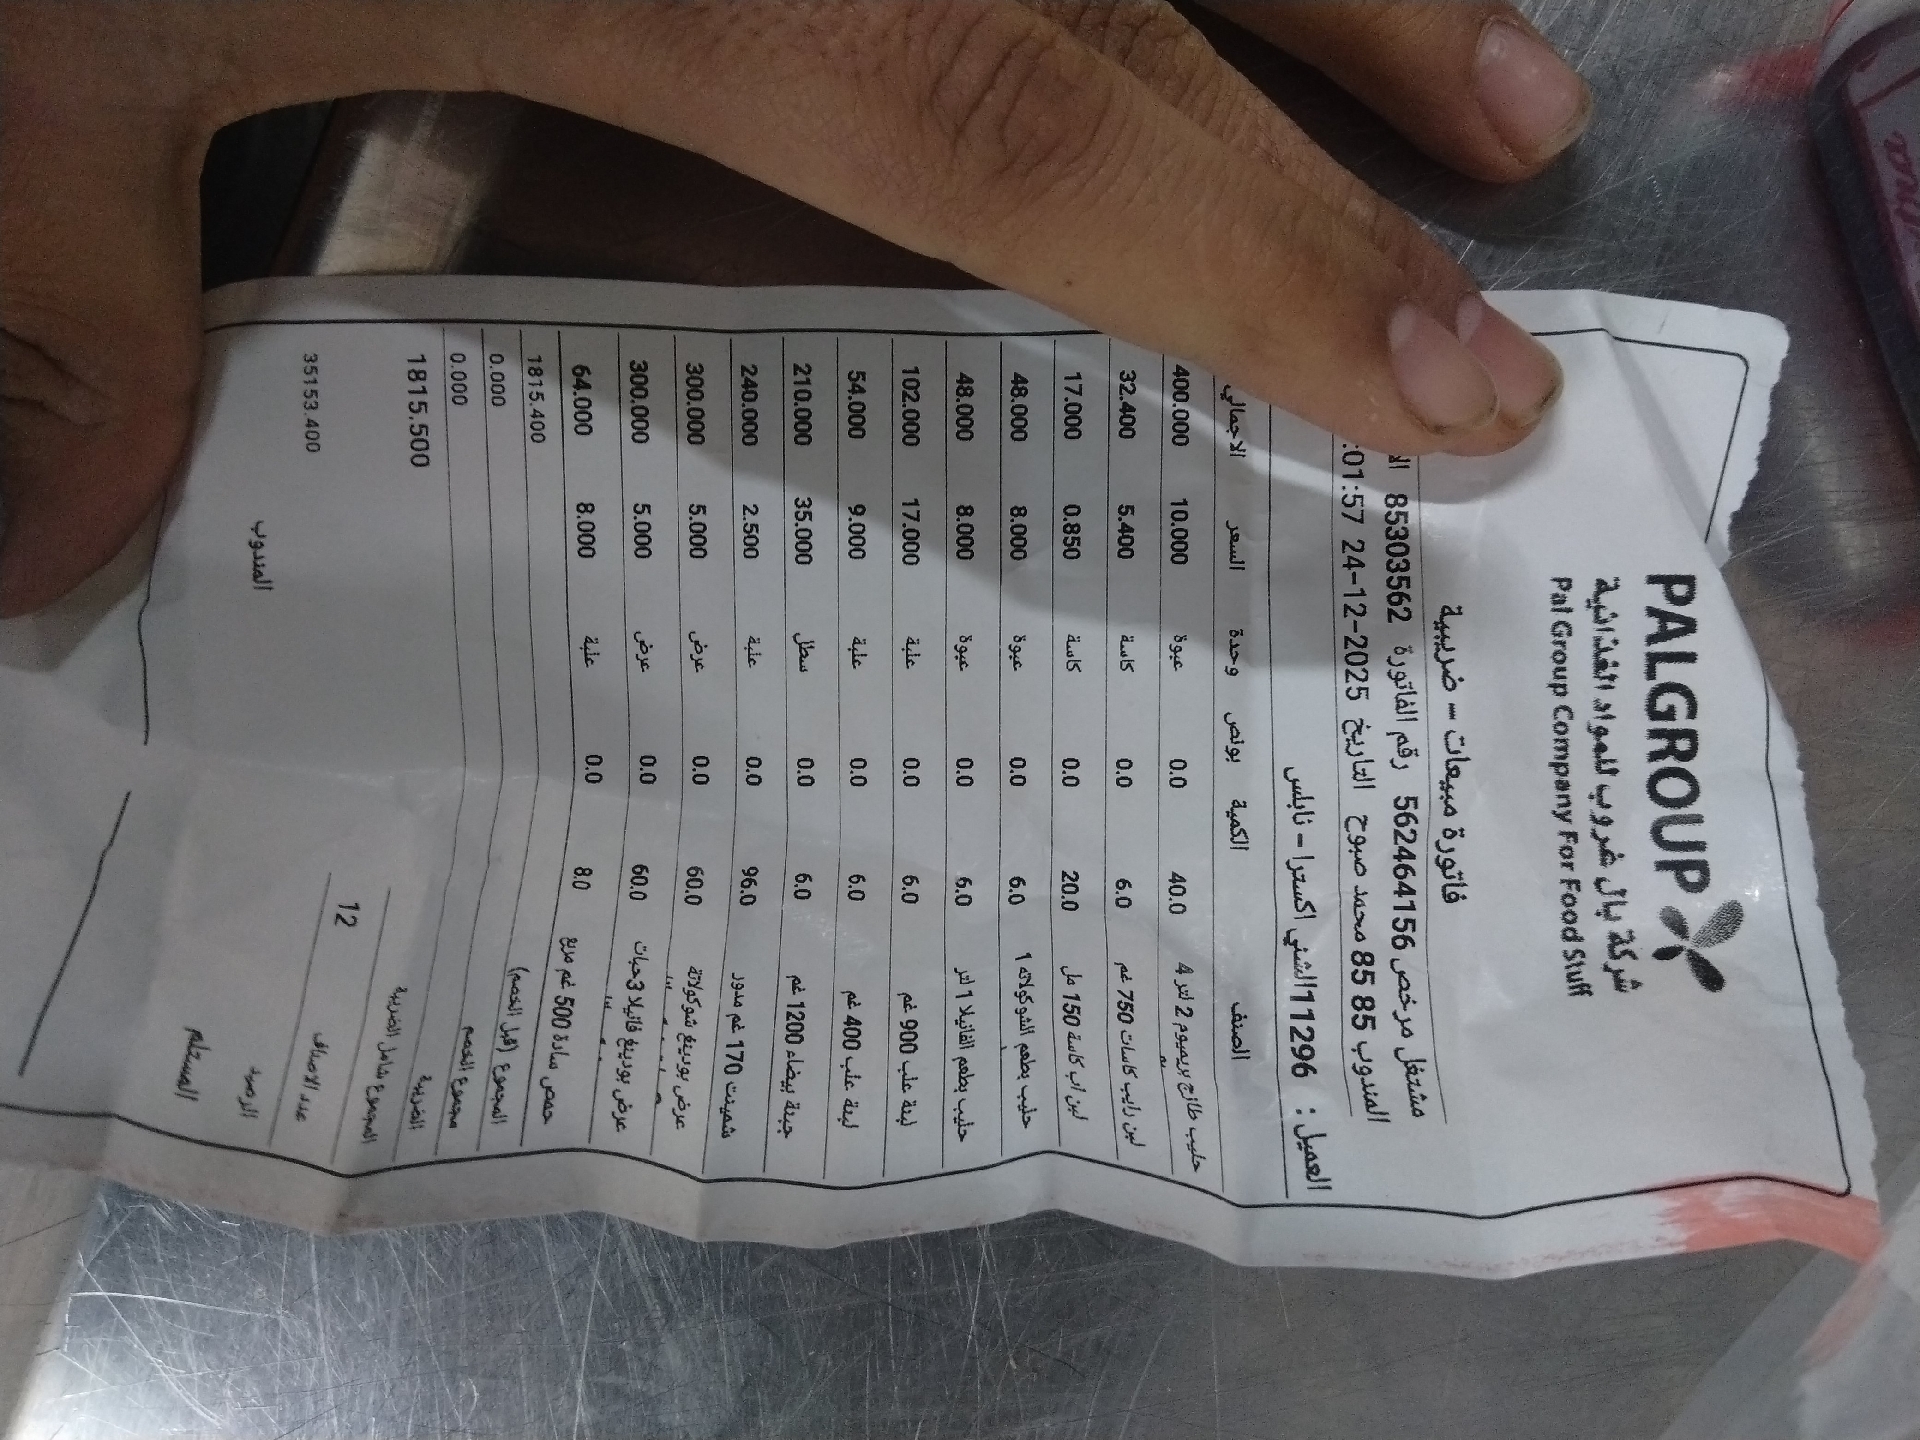 PALGROUP
شركة بال غروب للمواد الغذائية
Pal Group Company For Food Stuff
فاتورة مبيعات - ضريبية
مشتغل مرخص 562464156 رقم الفاتورة 85303562
المندوب 85 85 محمد صبوح التاريخ 24-12-2025 01:57:
العميل : 11296الشني اكسترا - نابلس
الصنف الكمية بونص وحدة السعر الاجمالي
حليب طازج بريميوم 2 لتر 4 40.0 0.0 عبوة 10.000 400.000
لبن رايب كاسات 750 غم 6.0 0.0 كاسة 5.400 32.400
لبن اب كاسة 150 مل 20.0 0.0 كاسة 0.850 17.000
حليب بطعم الشوكولاته 1 6.0 0.0 عبوة 8.000 48.000
حليب بطعم الفانيلا 1 لتر 6.0 0.0 عبوة 8.000 48.000
لبنة علب 900 غم 6.0 0.0 علبة 17.000 102.000
لبنة علب 400 غم 6.0 0.0 علبة 9.000 54.000
جبنة بيضاء 1200 غم 6.0 0.0 سطل 35.000 210.000
شمينت 170 غم مدور 96.0 0.0 علبة 2.500 240.000
عرض بودينغ شوكولاتة 60.0 0.0 عرض 5.000 300.000
عرض بودينغ فانيلا 3حبات 60.0 0.0 عرض 5.000 300.000
حمص سادة 500 غم مربع 8.0 0.0 علبة 8.000 64.000
المجموع (قبل الخصم) 1815.400
مجموع الخصم 0.000
الضريبة 0.000
المجموع شامل الضريبة 1815.500
عدد الاصناف 12
الرصيد 35153.400
المستلم المندوب